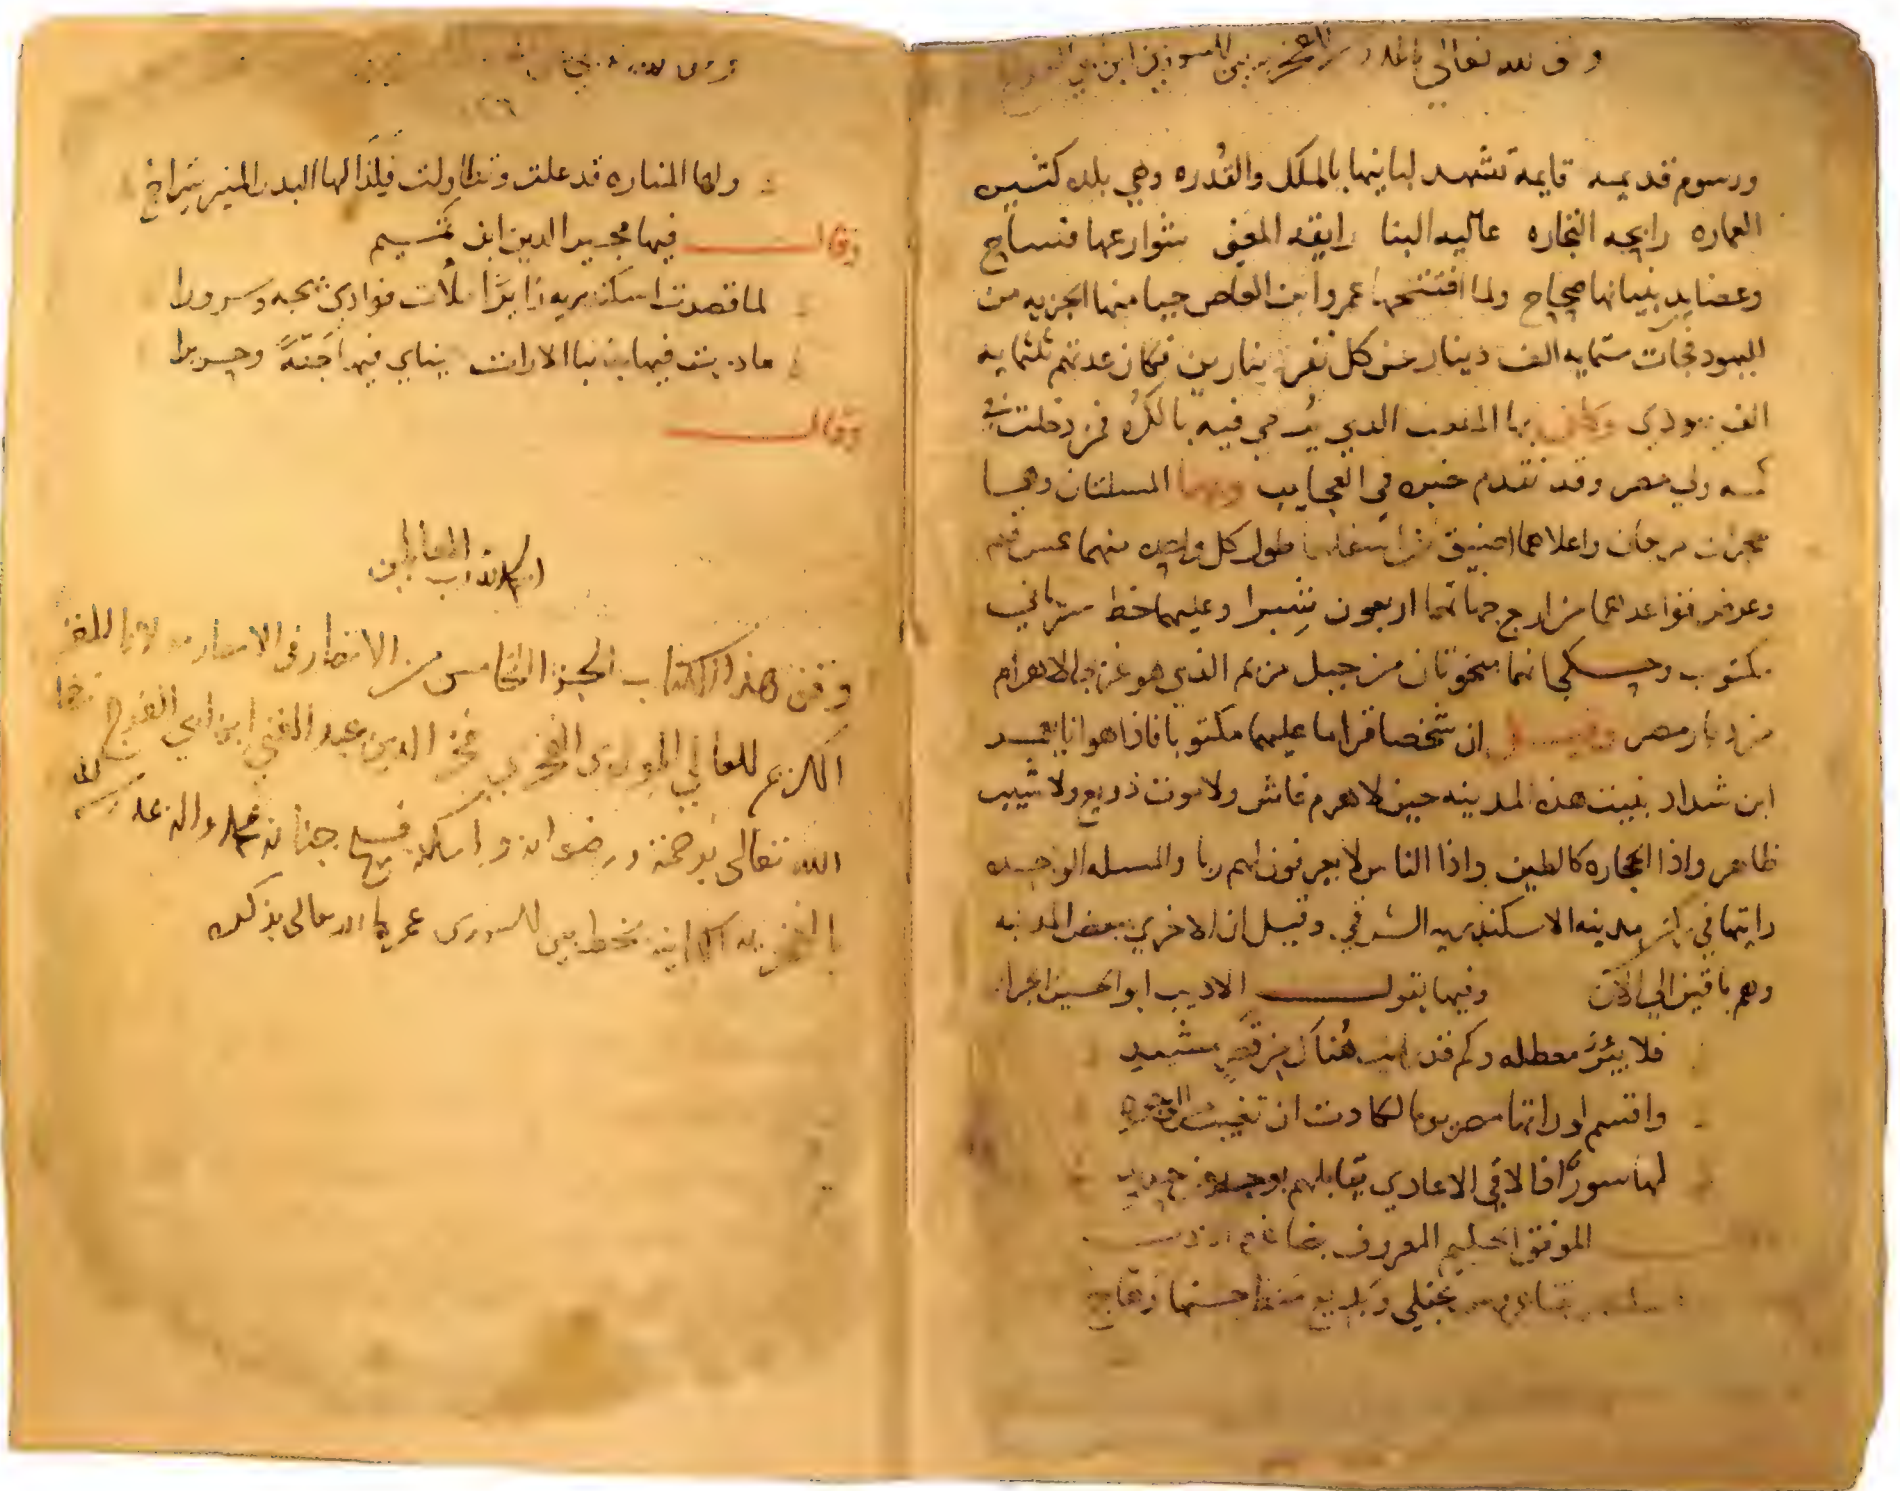 وقف لله تعالى بالمدرسة الفخرية بين السورين ابن ابي الفرج
ورسوم قديمه قايمة تشهد لبانيها بالملك والقدره وهي بلده كثيره
العماره رايجه التجاره عاليه البنا رايقه المعنى شوارعها فساح
وعضايد بنيانها صحاح ولما افتتحها عمرو ابن العاص جبا منها الجزيه من
اليهود فجات ستمايه الف دينار عن كل نفر دينارين فكان عدتهم ثلثمايه
الف يهودي وكان بها الملعب الذي يُرمي فيه بالكُره فمن دخلت في
كمه ولي مصر وقد تقدم خبره في العجايب وبها المسلتان وهما
حجران مربعان واعلاهما اضيق من اسفلهما طول كل واحده منهما خمس قيم
وعرض قواعدهما من اربع جهاتهما اربعون شبرا وعليهما خط سرياني
مكتوب وحكي انهما منحوتان من جبل بريم الذي هو غربي الاهرام
من ديار مصر وقيل ان شخصا قرا ما عليهما مكتوبا فاذا هو انا يعمر
ابن شداد بنيت هذه المدينه حين لا هرم فاش ولا موت ذريع ولا شيب
ظاهر واذا الحجاره كالطين واذا الناس لا يعرفون لهم ربا والمسله الواحده
رايتها في ركن مدينه الاسكندريه الشرقي وقيل ان الاخري ببعض المدينه
وهم باقين الي الان وفيها يقول الاديب ابو الحسين الجزار
فلا بئرٌ معطله وكم قد رايت هُناك من قصرٍ مشيد
واقسم لو راتها مصر يوما لكادت ان تغيب من الوجود
لها سورٌ اذا لاقي الاعادي يقابلهم بوجه من حديد
الموفق الحكيم المعروف
تجتلي وبديع منظر حسنها
ولها المناره قد علت وتطاولت فلذا لها البدر المنير سراج
وقال فيها مجير الدين ابن تميم
لما قصدت اسكندريه زايرًا ملأت فوادي بهجه وسرورا
ما درت فيها جانبا الا رات عيناي فيها جَنّةً وحريرا
وقال
الحمد لله رب العالمين
وقف هذا الكتاب الجزء الخامس من الانتصار في الامصار المقر
الكريم العالي المولوي الفخري فخر الدين عبد الغني ابن ابي الفرج تغمده
الله تعالى برحمته ورضوانه واسكنه فسيح جنانه على مدرسته
بالفخريه الكاينه بخط بين السورين عمرها الله تعالى بذكره